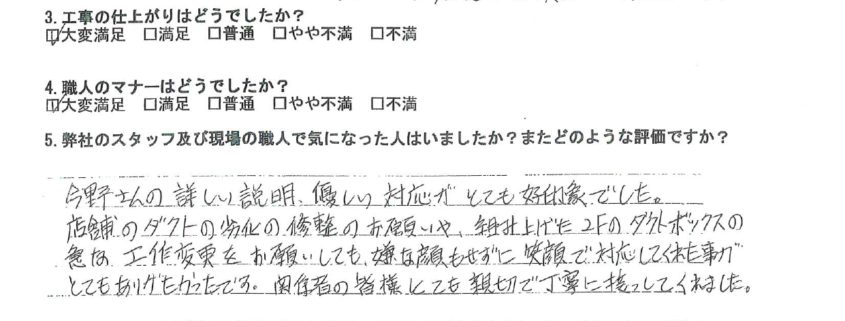 3. 工事の仕上がりはどうでしたか？
☑大変満足 □満足 □普通 □やや不満 □不満
4. 職人のマナーはどうでしたか？
☑大変満足 □満足 □普通 □やや不満 □不満
5. 弊社のスタッフ及び現場の職人で気になった人はいましたか？またどのような評価ですか？
今野さんの詳しい説明、優しい対応がとても好印象でした。
店舗のダクトの劣化の修整のお願いや、組み上げた2Fのダクトボックスの
急な工作変更をお願いしても、嫌な顔もせずに笑顔で対応してくれた事が
とてもありがたかったです。関係者の皆様にても親切で丁寧に接っしてくれました。